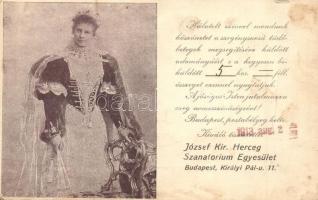 Hálatelt szívvel mondunk
köszönetet a szegénysorsú tüdő-
betegek megsegítésére küldött
adományáért s a kegyesen be-
küldött 5 kor. — fill.
összeget ezennel nyugtatjuk.
A jóságos Isten jutalmazza
meg nemesszívűségéért!
Budapest, postabélyeg kelte.
Kiváló tisztelettel
1913 AUG. 2
József Kir. Herceg
Szanatorium Egyesület
Budapest, Királyi Pál-u. 11.